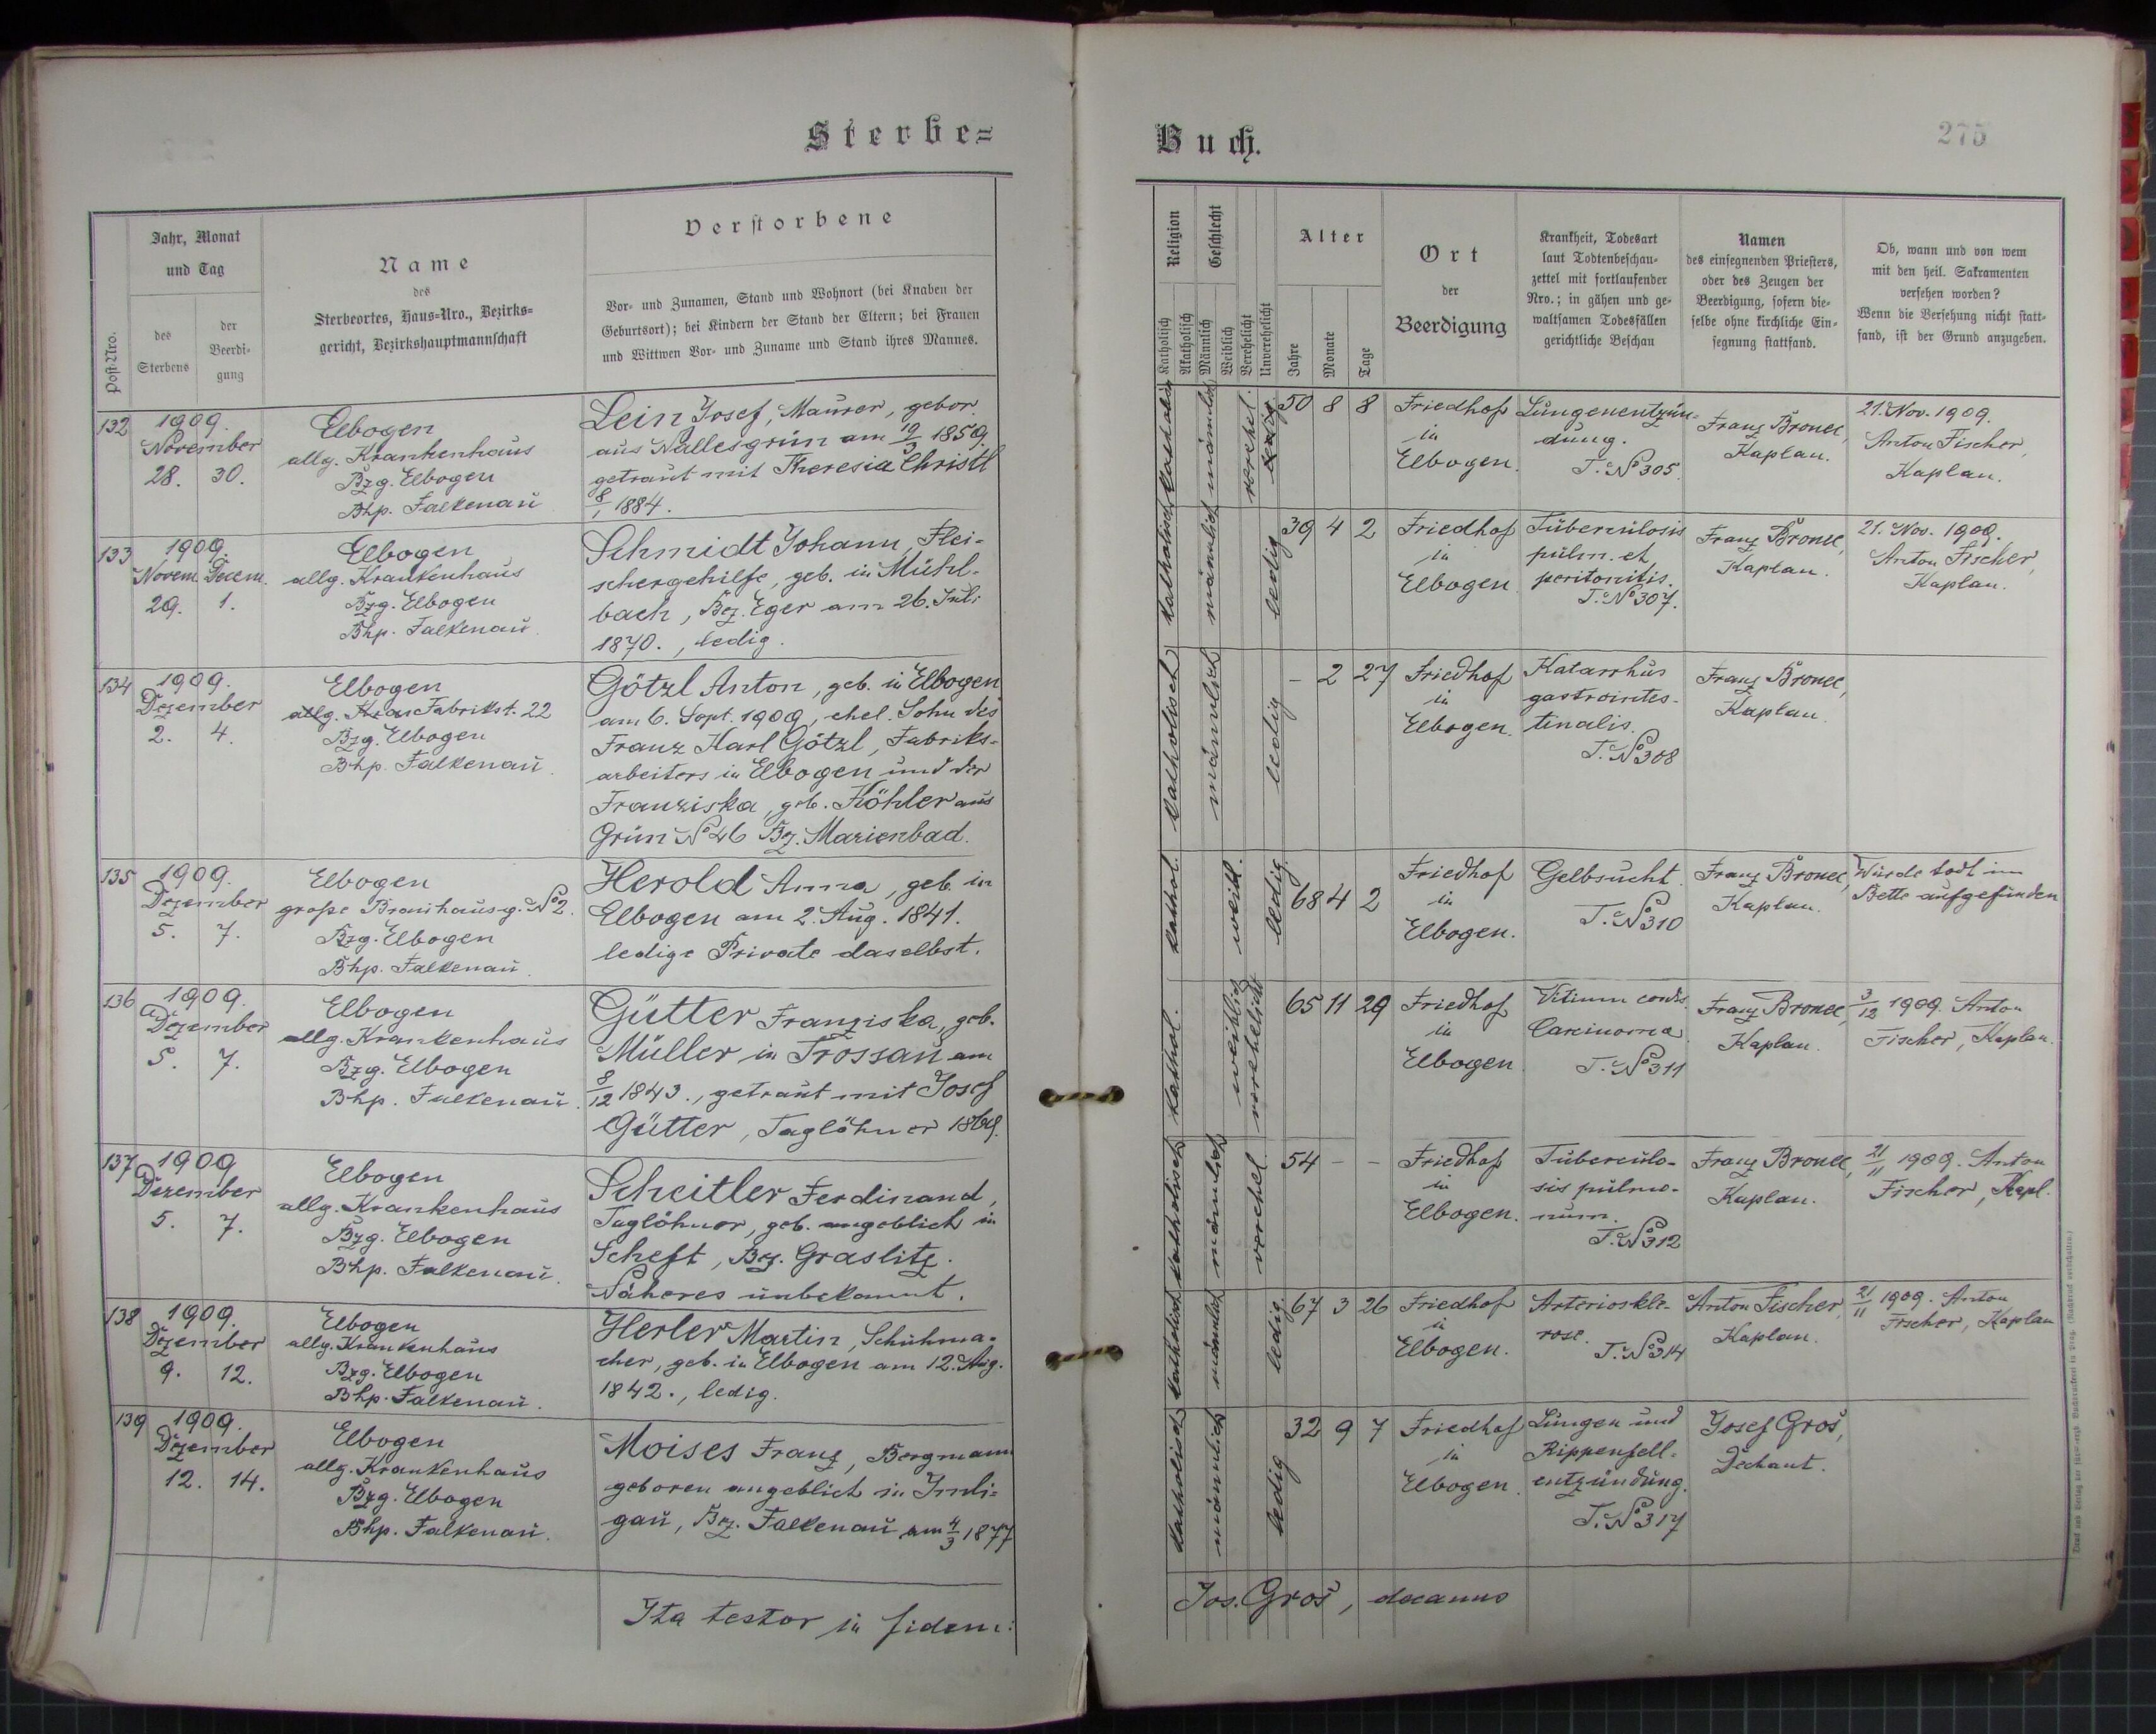 Sterbe=
Buch.
275
Post-Nro.
Jahr, Monat
und Tag
des
Sterbens
der
Beerdi-
gung
Name
des
Sterbeortes, Haus-Nro., Bezirks=
gericht, Bezirkshauptmannschaft
Verstorbene
Vor- und Zunamen, Stand und Wohnort (bei Knaben der
Geburtsort); bei Kindern der Stand der Eltern; bei Frauen
und Wittwen Vor- und Zuname und Stand ihres Mannes.
Religion
Katholisch
Akatholisch
Geschlecht
Männlich
Weiblich
Verehelicht
Unverehelicht
Alter
Jahre
Monate
Tage
Ort
der
Beerdigung
Krankheit, Todesart
laut Todtenbeschau-
zettel mit fortlaufender
Nro.; in gähen und ge-
waltsamen Todesfällen
gerichtliche Beschau
Namen
des einsegnenden Priesters,
oder des Zeugen der
Beerdigung, sofern die-
selbe ohne kirchliche Ein-
segnung stattfand.
Ob, wann und von wem
mit den heil. Sakramenten
versehen worden?
Wenn die Versehung nicht statt-
fand, ist der Grund anzugeben.
132
1909.
November
28. 30.
Elbogen
allg. Krankenhaus
Bzg. Elbogen
Bhp. Falkenau
Lein Josef, Maurer, gebor.
aus Nallesgrün am 19/3 1859.
getraut mit Theresia Christl
8/1 1884.
katholisch
männlich
verehel.
50 8 8
Friedhof
in
Elbogen.
Lungenentzün-
dung.
T. No 305
Franz Bronec,
Kaplan.
21. Nov. 1909.
Anton Fischer,
Kaplan.
133
1909.
Novem. Decem.
29. 1.
Elbogen
allg. Krankenhaus
Bzg. Elbogen
Bhp. Falkenau.
Schmidt Johann, Flei-
schergehilfe, geb. in Mühl-
bach, Bez. Eger am 26. Juli
1870., ledig.
katholisch
männlich
ledig
39 4 2
Friedhof
in
Elbogen.
Tuberculosis
pulm. et
peritonitis.
T. No 307.
Franz Bronec,
Kaplan.
21. Nov. 1909.
Anton Fischer,
Kaplan.
134
1909.
Dezember
2. 4.
Elbogen
allg. Kran Fabrikst. 22
Bzg. Elbogen
Bhp. Falkenau.
Götzl Anton, geb. in Elbogen
am 6. Sept. 1909, ehel. Sohn des
Franz Karl Götzl, Fabriks-
arbeiters in Elbogen und der
Franziska, geb. Köhler aus
Grün No 26 Bz. Marienbad.
katholisch
männlich
ledig
- 2 27
Friedhof
in
Elbogen.
Katarrhus
gastrointes-
tinalis.
T. No 308
Franz Bronec,
Kaplan.
135
1909.
Dezember
5. 7.
Elbogen
große Brauhausg. No 2.
Bzg. Elbogen
Bhp. Falkenau.
Herold Anna, geb. in
Elbogen am 2. Aug. 1841.
ledige Private daselbst.
kathol.
weibl.
ledig.
68 4 2
Friedhof
in
Elbogen.
Gelbsucht.
T. No 310
Franz Bronec,
Kaplan.
Wurde todt im
Bette aufgefunden
136
1909.
Dezember
5. 7.
Elbogen
allg. Krankenhaus
Bzg. Elbogen
Bhp. Falkenau.
Gütter Franziska, geb.
Müller in Trossau am
8/12 1843., getraut mit Josef
Gütter, Taglöhner 1869.
kathol.
weiblich
verehelicht
65 11 29
Friedhof
in
Elbogen
Vitium cordis
Carcinoma
T. No 311
Franz Bronec,
Kaplan.
3/12 1909. Anton
Fischer, Kaplan.
137
1909
Dezember
5. 7.
Elbogen
allg. Krankenhaus
Bzg. Elbogen
Bhp. Falkenau.
Scheitler Ferdinand,
Taglöhner, geb. angeblich in
Scheft, Bez. Graslitz.
Näheres unbekannt.
katholisch
männlich
verehel.
54 - -
Friedhof
in
Elbogen.
Tuberculo-
sis pulmo-
num.
T. No 312
Franz Bronec,
Kaplan.
21/11 1909. Anton
Fischer, Kapl.
138
1909.
Dezember
9. 12.
Elbogen
allg. Krankenhaus
Bzg. Elbogen
Bhp. Falkenau.
Herler Martin, Schuhma-
cher, geb. in Elbogen am 12. Aug.
1842., ledig.
katholisch
männlich
ledig.
67 3 26
Friedhof
in
Elbogen.
Arterioskle-
rose.
T. No 314
Anton Fischer,
Kaplan.
21/11 1909. Anton
Fischer, Kaplan
139
1909.
Dezember
12. 14.
Elbogen
allg. Krankenhaus
Bzg. Elbogen
Bhp. Falkenau.
Moises Franz, Bergmann
geboren angeblich in Imli-
gau, Bez. Falkenau am 4/3 1877
katholisch
männlich
ledig
32 9 7
Friedhof
in
Elbogen.
Lungen und
Rippenfell-
entzündung.
T. No 317
Josef Groš,
Dechant.
Ita testor in fidem:
Jos. Groš, decanus